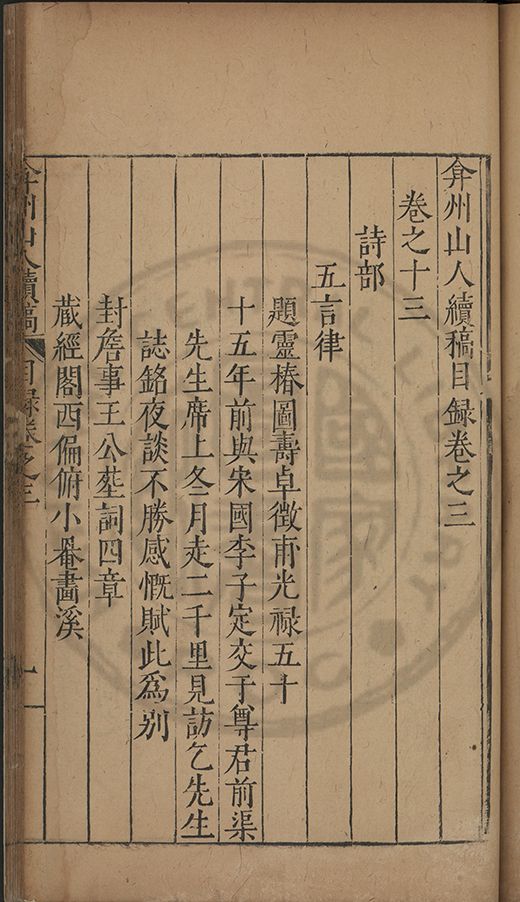 弇州山人續稿目録卷之三
卷之十三
詩部
五言律
題靈椿圖壽卓徵甫光禄五十
十五年前與宋國李子定交于尊君前渠
先生席上冬月走二千里見訪乞先生
誌銘夜談不勝感慨賦此為别
封詹事王公𦵏詞四章
藏經閣西偏俯小罨畵溪
弇州山人續稿
目録卷之三
一